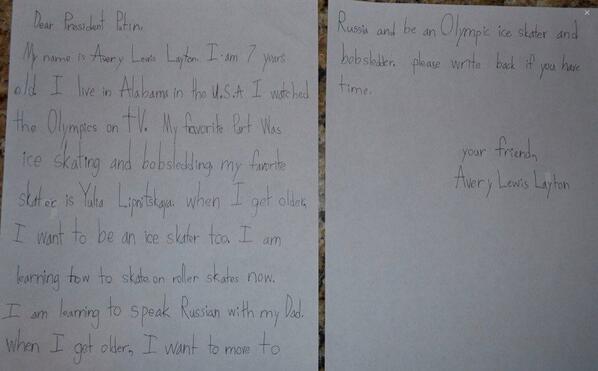 Dear President Putin,
My name is Avery Lewis Layton. I am 7 years
old. I live in Alabama in the U.S.A I watched
the Olympics on TV. My favorite Part Was
ice skating and bobsledding. my favorite
skater is Yulia Lipnitskaya. when I get older,
I want to be an ice skater too. I am
learning how to skate on roller skates now.
I am learning to speak Russian with my Dad.
when I get older, I want to move to
Russia and be an Olympic ice skater and
bobsledder. please write back if you have
time.
your friend,
Avery Lewis Layton